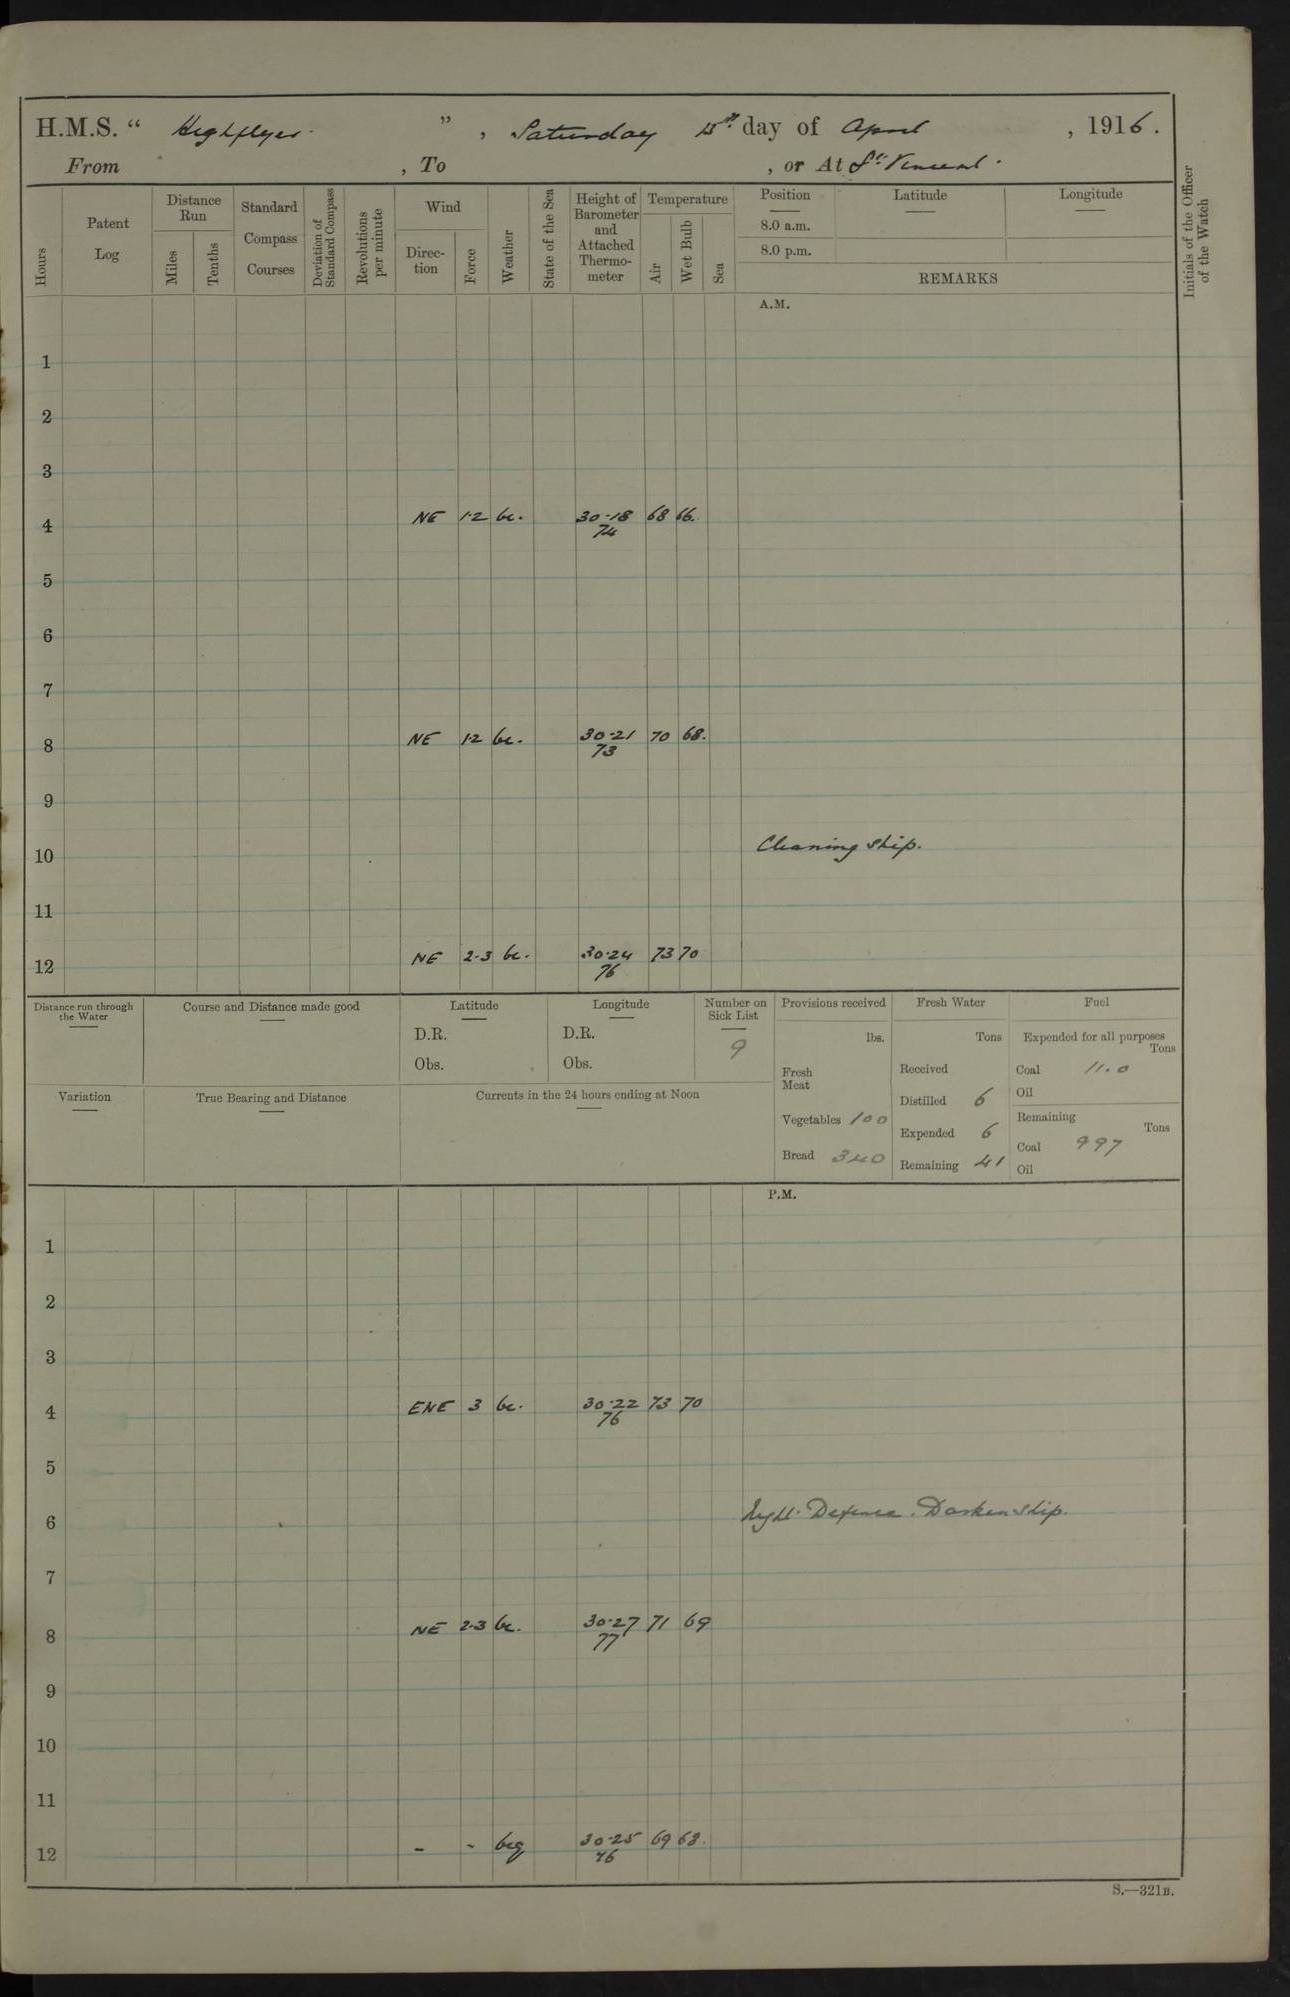 H.M.S. " Highflyer. " , Saturday 15th day of April , 1916.
From , To , or At St. Vincent.
Hours
Patent Log
Distance Run
Miles
Tenths
Standard Compass Courses
Deviation of Standard Compass
Revolutions per minute
Wind
Direction
Force
Weather
State of the Sea
Height of Barometer and Attached Thermometer
Temperature
Air
Wet Bulb
Sea
Position
8.0 a.m.
8.0 p.m.
Latitude
Longitude
REMARKS
Initials of the Officer of the Watch
A.M.
1
2
3
4 NE 1·2 bc. 30·18 68 66.
74
5
6
7
8 NE 1·2 bc. 30·21 70 68.
73
9
10 Cleaning Ship.
11
12 NE 2·3 bc. 30·24 73 70
76
Distance run through the Water
Course and Distance made good
Latitude
D.R.
Obs.
Longitude
D.R.
Obs.
Number on Sick List
9
Provisions received
lbs.
Fresh Meat
Vegetables 100
Bread 340
Fresh Water
Tons
Received
Distilled 6
Expended 6
Remaining 41
Fuel
Expended for all purposes
Tons
Coal 11.0
Oil
Remaining
Tons
Coal 997
Oil
Variation
True Bearing and Distance
Currents in the 24 hours ending at Noon
P.M.
1
2
3
4 ENE 3 bc. 30·22 73 70
76
5
6 Night Defence. Darken Ship.
7
8 NE 2·3 bc. 30·27 71 69
77
9
10
11
12 - - bcq 30·25 69 68.
76
S.—321B.